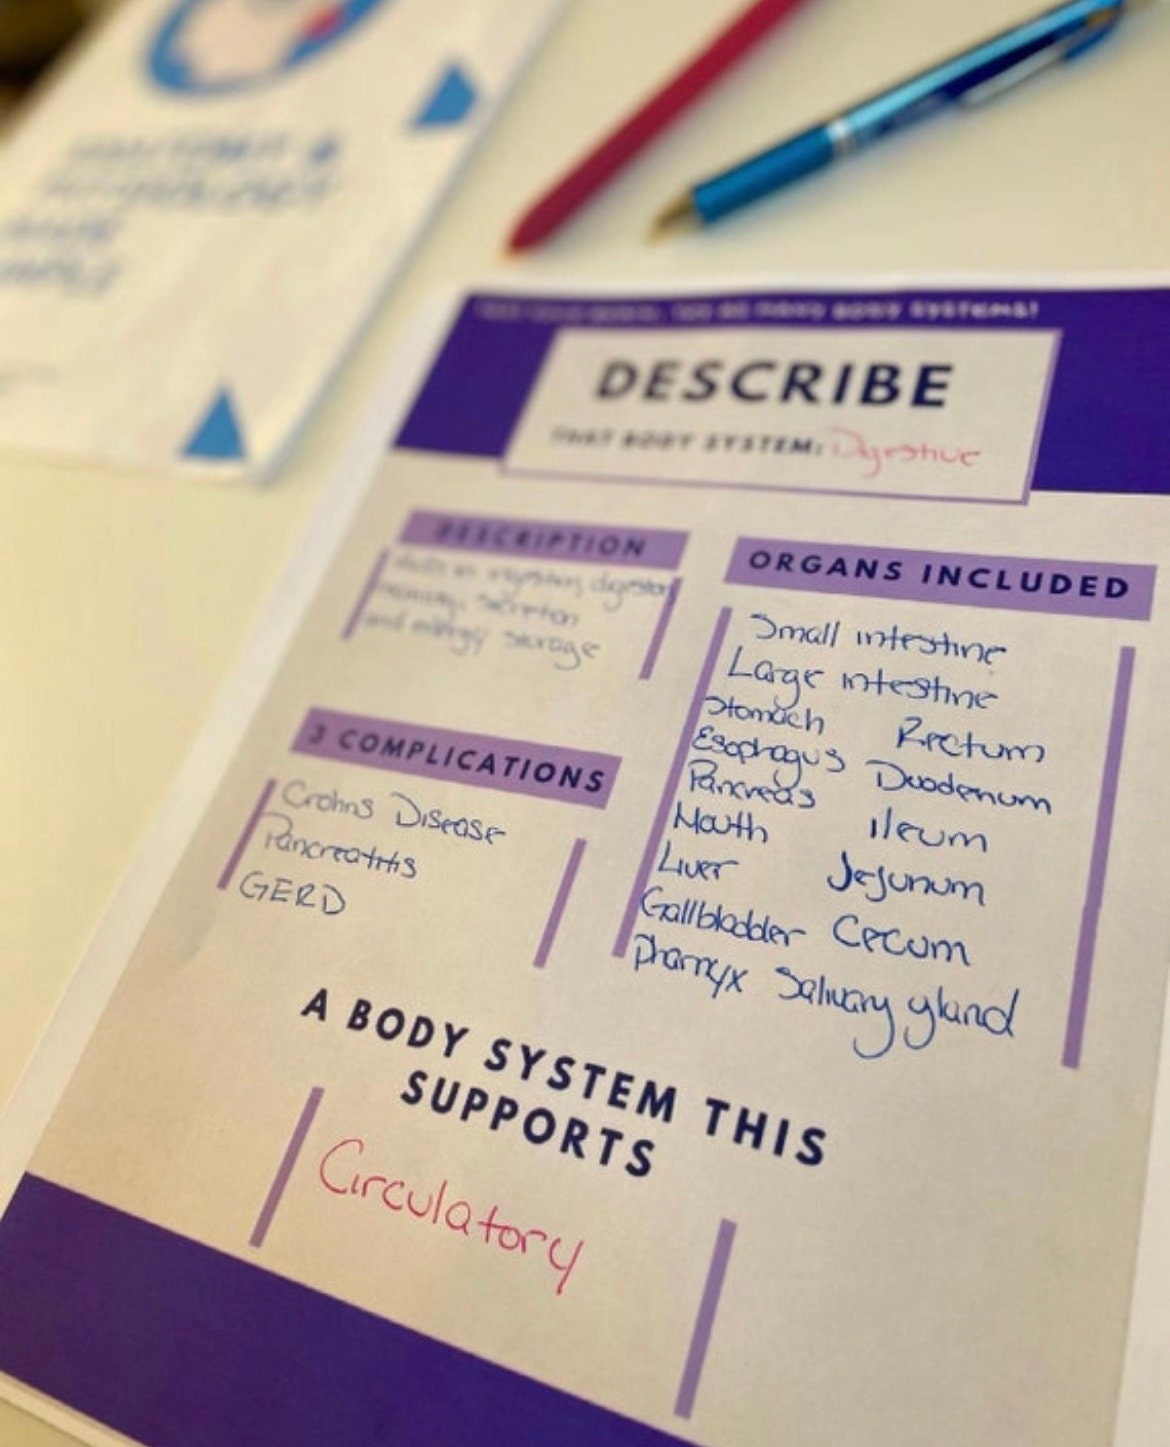 ANATOMY &
PHYSIOLOGY
BODY SYSTEMS!
DESCRIBE
THAT BODY SYSTEM: Digestive
DESCRIPTION
ingestion, digestion
secretion
and energy storage
3 COMPLICATIONS
Crohns Disease
Pancreatitis
GERD
ORGANS INCLUDED
Small intestine
Large intestine
Stomach Rectum
Esophagus Duodenum
Pancreas Ileum
Mouth Jejunum
Liver Cecum
Gallbladder Salivary gland
Pharnyx
A BODY SYSTEM THIS
SUPPORTS
Circulatory